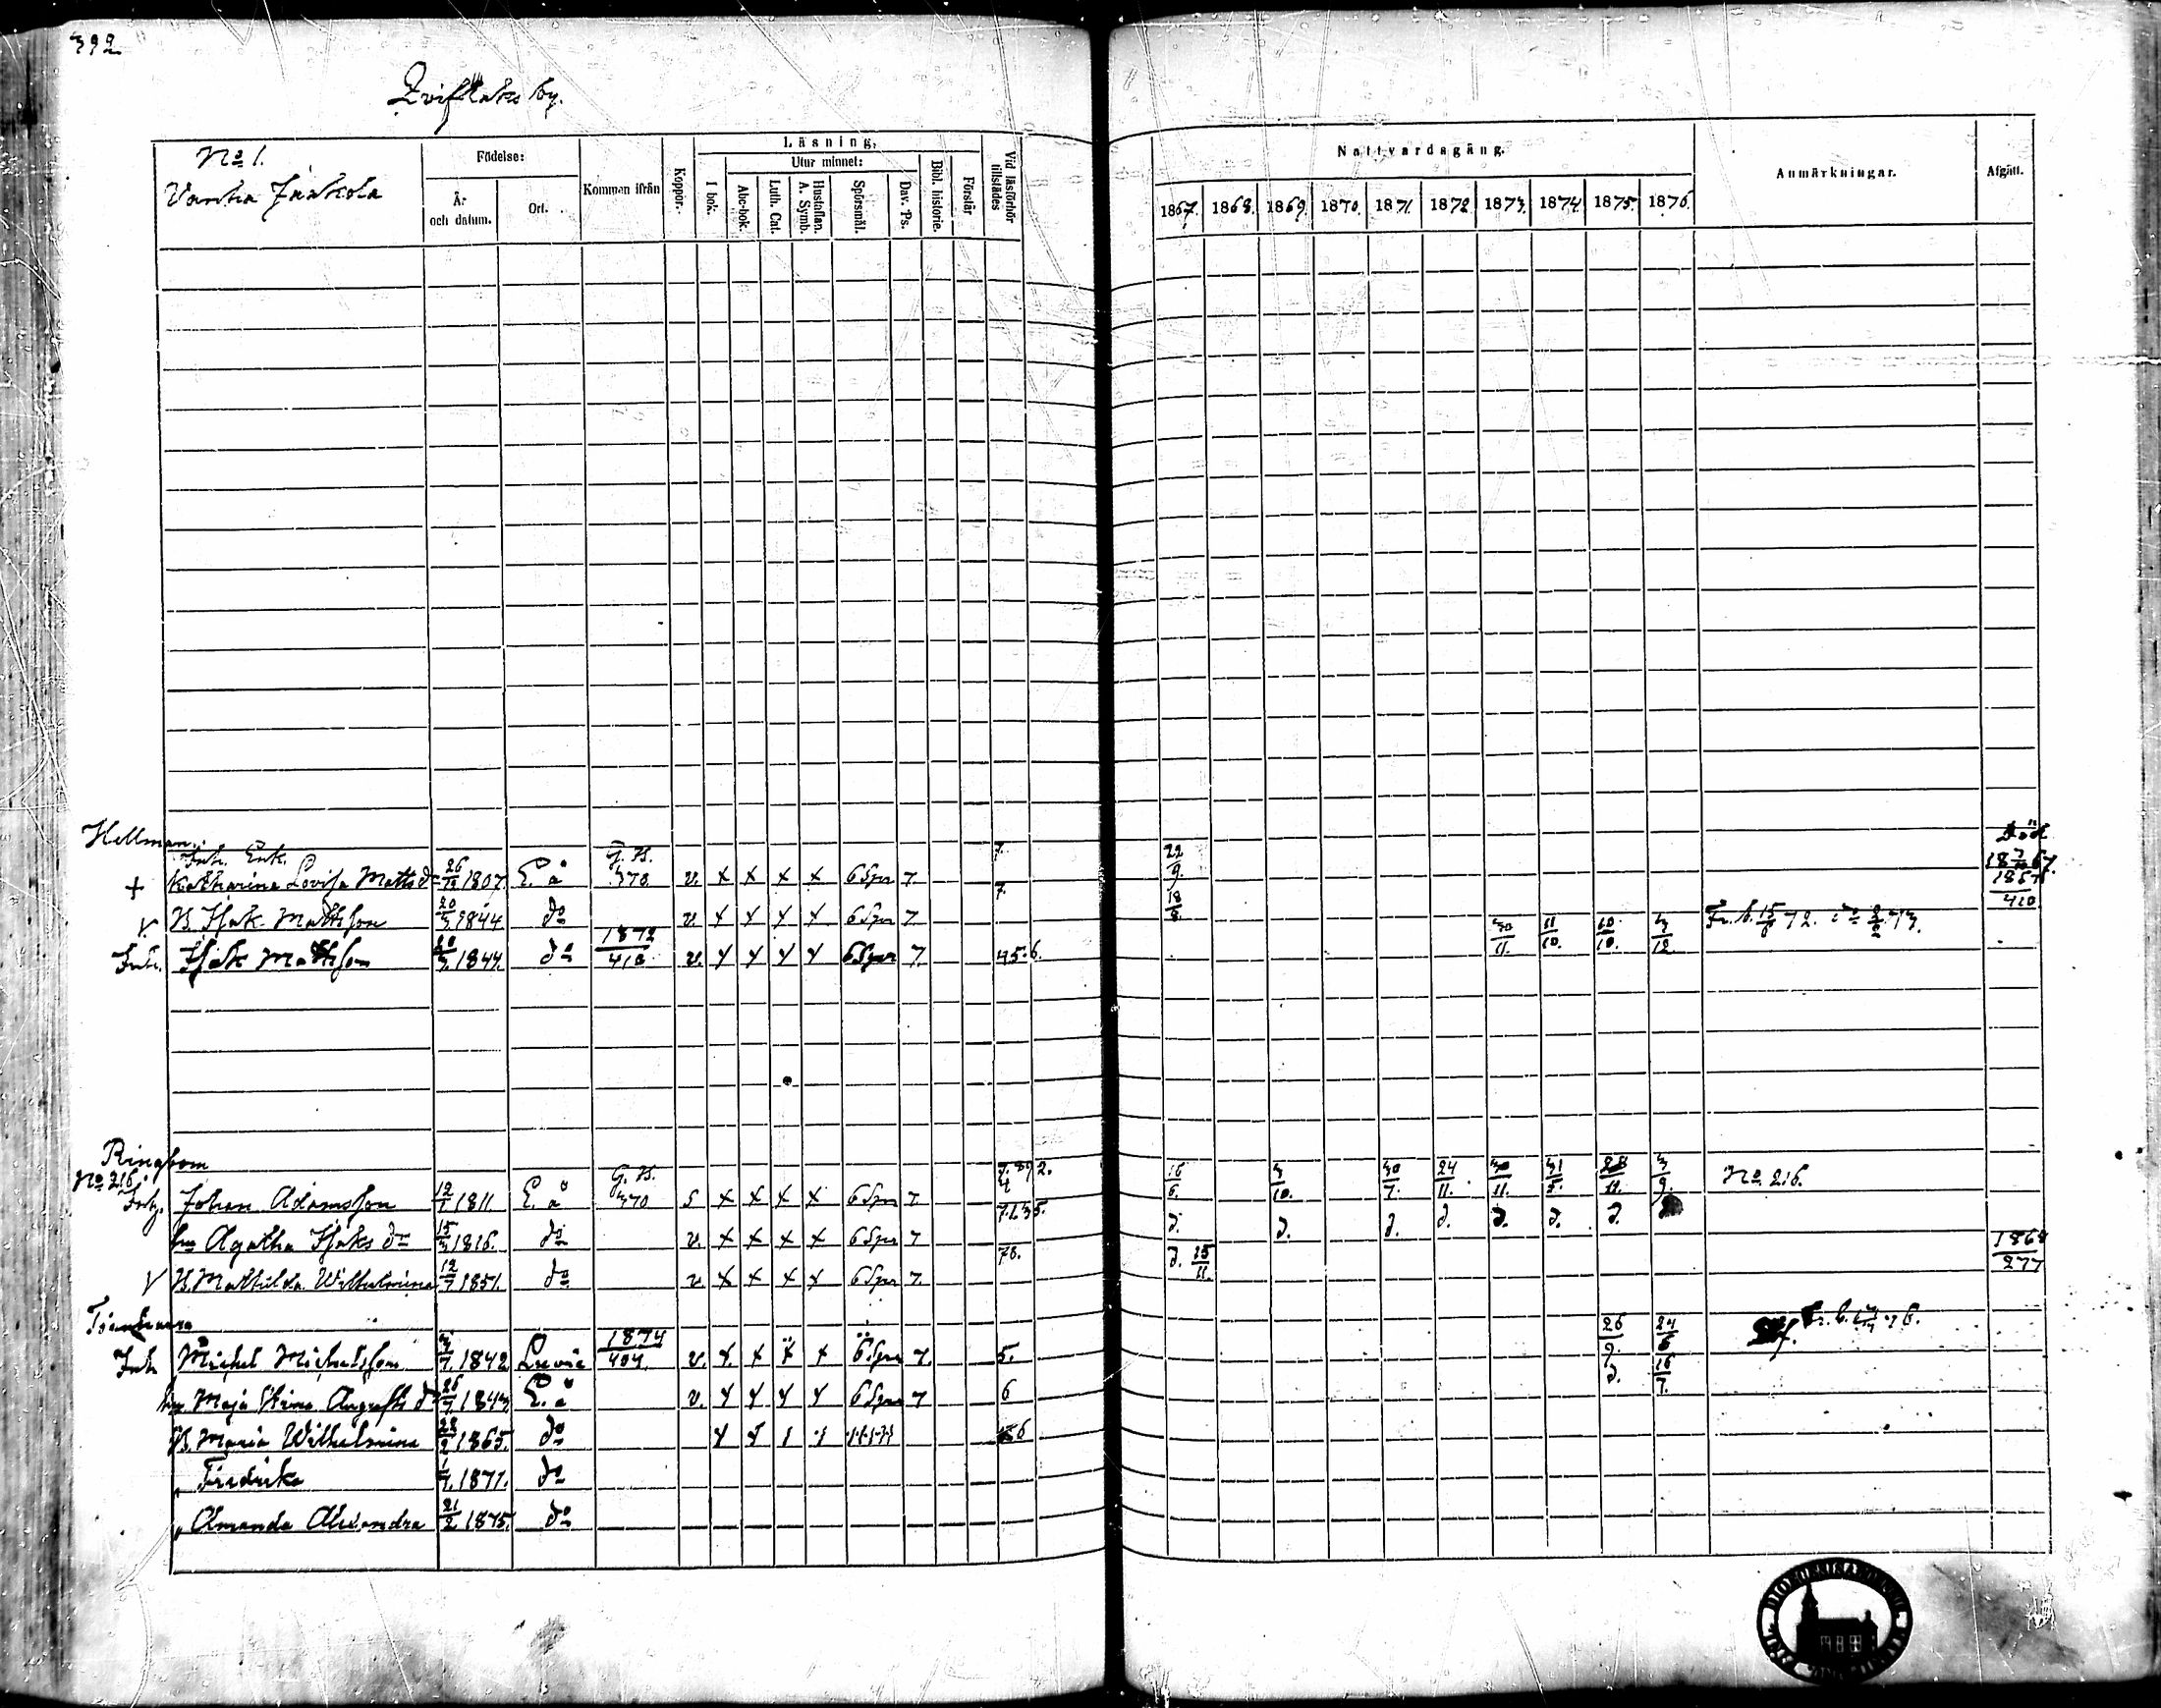 392
Qviflaks by.
No 1.
Vanha Jaakola
Födelse:
År och datum.
Ort.
Kommen ifrån
Koppor.
Läsning.
I bok.
Utur minnet:
Abc-bok.
Luth. Cat.
Hustaflan. A. Symb.
Spörsmål.
Dav. Ps.
Bibl. historie.
Förstår
Vid läsförhör tillstädes
Nattvardsgång.
1867. 1868. 1869. 1870. 1871. 1872. 1873. 1874. 1875. 1876.
Anmärkningar.
Afgått.
Hellman.
Inh. Enk. G. B. 7. 22/9 Död
+ Katharina Lovisa Matts dr 26/12 1807. E. å 370. v. x x x x 6 Spr 7 1867.
V B. Isak Mattsson 20/3 1844. do v. x x x x 6 Spr 7 7. 18/8 1867/410
Inh. Isak Mattsson 20/3 1844. do 1872/410 v. x x x x 6 Spr 7. 45.6. 30/11. 11/10. 10/10. 3/12 Fr. b. 15/6 72.
Ringbom
No 216. G. B.
Inhy. Johan Adamsson 12/7 1811. E. å 370 s x x x x 6 Spr 7 16/6. 3/10. 30/7. 24/11. 30/11. 31/7. 28/11. 3/9. No 216.
hu Agatha Isaks dr 15/3 1816. do v. x x x x 6 Spr 7 d. d. d. d. d. d. d.
V B. Mathilda Wilhelmina 12/7 1851. do v. x x x x 6 Spr 7. 78. d. 15/11. 1868/277
Inh Michel Michelsson 1842 1874/404. v. x x x x 6 Spr 7. 5. 26/9. 24/6
hu. Maja Stina Augusts dr 26/7 1843. E. å v. x x x x 6 Spr 7 6 d. 16/7.
B. Maria Wilhelmina 28/2 1865. do 6
" Fredrika 1/7. 1871. do
" Amanda Alexandra 21/2 1875. do